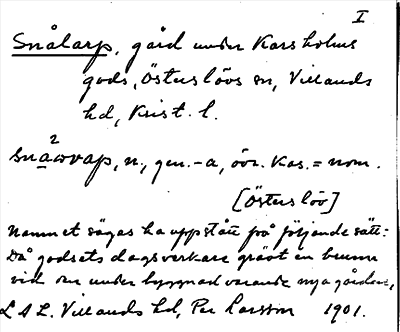 I
Snålarp, gård under Karsholms
gods, Österslövs sn, Villands
hd, Krist. l.
2
snawrap, n., gen. -a, övr. kas. = nom.
[Österslöv]
Namnet sägas ha uppstått på följande sätt:
Då godsets dagsverkare grävt en brunn
vid den under byggnad varande nya gården,
L A L. Villands hd, Per Larsson 1901.